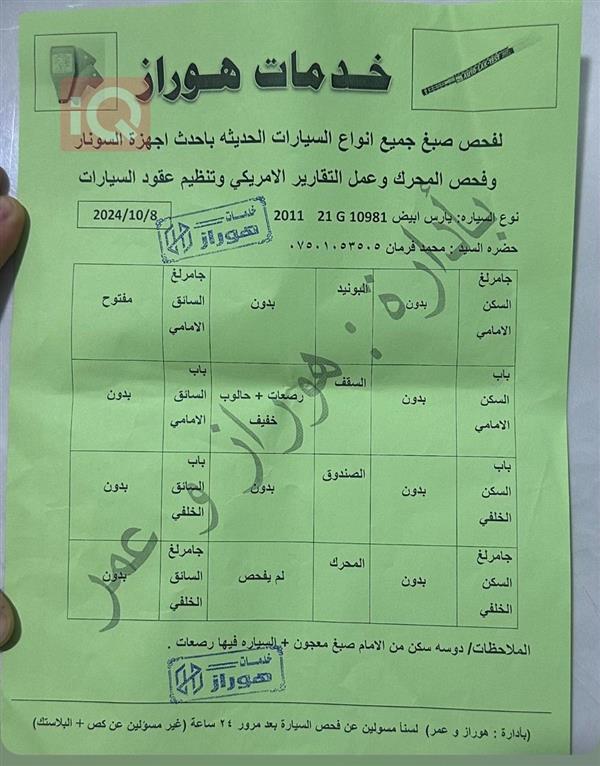 خدمات هوراز
iQ
لفحص صبغ جميع انواع السيارات الحديثه باحدث اجهزة السونار
وفحص المحرك وعمل التقارير الامريكي وتنظيم عقود السيارات
2024/10/8
خدمات هوراز
نوع السياره: يارس ابيض 10981 G 21 2011
حضره السيد : محمد فرمان ٠٧٥٠١٠٥٣٥٠٥
جامرلغ السكن الامامي بدون البونيد بدون جامرلغ السائق الامامي مفتوح
باب السكن الامامي بدون السقف رصعات + حالوب خفيف باب السائق الامامي بدون
باب السكن الخلفي بدون الصندوق بدون باب السائق الخلفي بدون
جامرلغ السكن الخلفي بدون المحرك لم يفحص جامرلغ السائق الخلفي بدون
بأدارة : هوراز و عمر
الملاحظات/ دوسه سكن من الامام صبغ معجون + السياره فيها رصعات .
خدمات هوراز
(بأدارة : هوراز و عمر) لسنا مسولين عن فحص السيارة بعد مرور ٢٤ ساعة (غير مسؤلين عن كص + البلاستك)